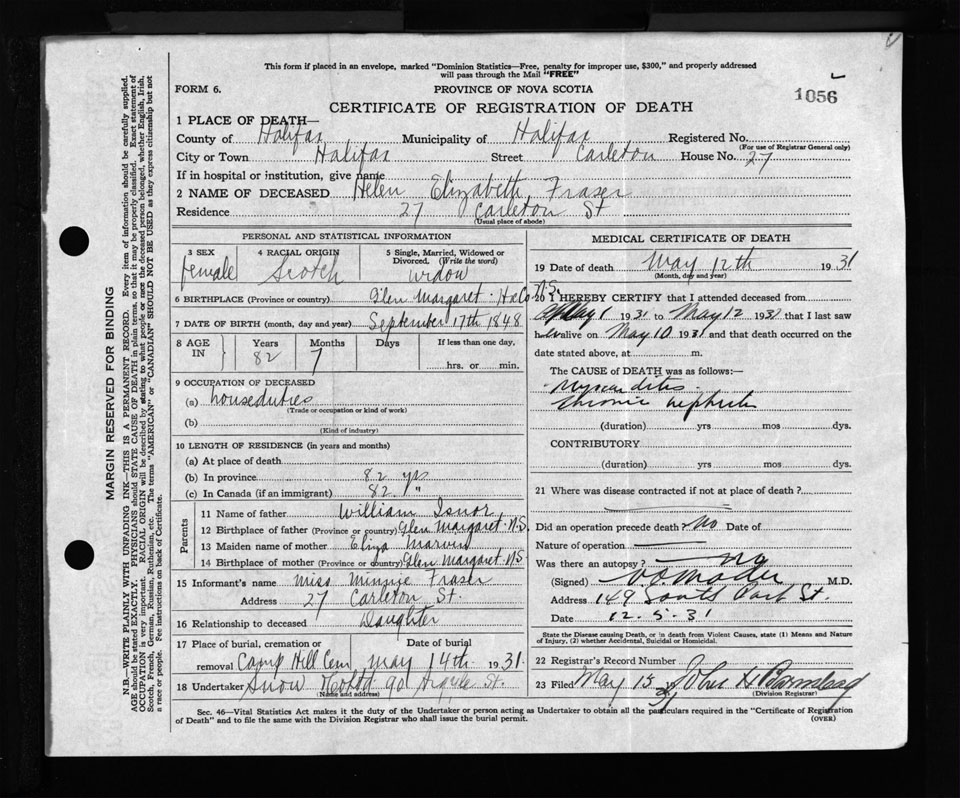 This form if placed in an envelope, marked "Dominion Statistics—Free, penalty for improper use, $300," and properly addressed
will pass through the Mail "FREE"
FORM 6.
PROVINCE OF NOVA SCOTIA
1056
CERTIFICATE OF REGISTRATION OF DEATH
1 PLACE OF DEATH—
County of Halifax Municipality of Halifax Registered No.
(For use of Registrar General only)
City or Town Halifax Street Carleton House No. 27
If in hospital or institution, give name
2 NAME OF DECEASED Helen Elizabeth Fraser
Residence 27 Carleton St
(Usual place of abode)
PERSONAL AND STATISTICAL INFORMATION
3 SEX 4 RACIAL ORIGIN 5 Single, Married, Widowed or Divorced. (Write the word)
female Scotch widow
6 BIRTHPLACE (Province or country) Glen Margaret. Hx Co N.S.
7 DATE OF BIRTH (month, day and year) September 17th 1848
8 AGE IN Years Months Days If less than one day,
82 7 hrs. or min.
9 OCCUPATION OF DECEASED
(a) houseduties
(Trade or occupation or kind of work)
(b)
(Kind of industry)
10 LENGTH OF RESIDENCE (in years and months)
(a) At place of death
(b) In province 82 yrs
(c) In Canada (if an immigrant) 82 "
Parents
11 Name of father William Isnor
12 Birthplace of father (Province or country) Glen Margaret, N.S.
13 Maiden name of mother Eliza
14 Birthplace of mother (Province or country) Glen Margaret NS
15 Informant's name Miss Minnie Fraser
Address 27 Carleton St.
16 Relationship to deceased Daughter
17 Place of burial, cremation or removal Date of burial
Camp Hill Cem May 14th 1931.
18 Undertaker Snow 90 Argyle St.
(Name and address)
MEDICAL CERTIFICATE OF DEATH
19 Date of death May 12th 1931
(Month, day and year)
20 I HEREBY CERTIFY that I attended deceased from
May 1 1931 to May 12 1931 that I last saw
her alive on May 10 1931 and that death occurred on the
date stated above, at m.
The CAUSE OF DEATH was as follows:
Myocarditis
Chronic nephritis
(duration) yrs mos dys.
CONTRIBUTORY
(duration) yrs. mos. dys.
21 Where was disease contracted if not at place of death?
Did an operation precede death? No Date of
Nature of operation
Was there an autopsy? No
(Signed) Mader M.D.
Address 149 South Park St.
Date 12-5-31
State the Disease causing Death, or in death from Violent Causes, state (1) Means and Nature
of Injury, (2) whether Accidental, Suicidal or Homicidal.
22 Registrar's Record Number
23 Filed May 13 31 John H
(Division Registrar)
Sec. 46—Vital Statistics Act makes it the duty of the Undertaker or person acting as Undertaker to obtain all the particulars required in the "Certificate of Registration
of Death" and to file the same with the Division Registrar who shall issue the burial permit.
(OVER)
MARGIN RESERVED FOR BINDING
N.B.—WRITE PLAINLY WITH UNFADING INK—THIS IS A PERMANENT RECORD. Every item of information should be carefully supplied.
AGE should be stated EXACTLY. PHYSICIANS should STATE CAUSE OF DEATH in plain terms, so that it may be properly classified. Exact statement of
OCCUPATION is very important. RACIAL ORIGIN will be described by stating to what people or race the deceased person belonged, whether English, Irish,
Scotch, French, German, Russian, Ruthenian, etc. The terms "AMERICAN" or "CANADIAN" SHOULD NOT BE USED as they express citizenship but not
a race or people. See instructions on back of Certificate.